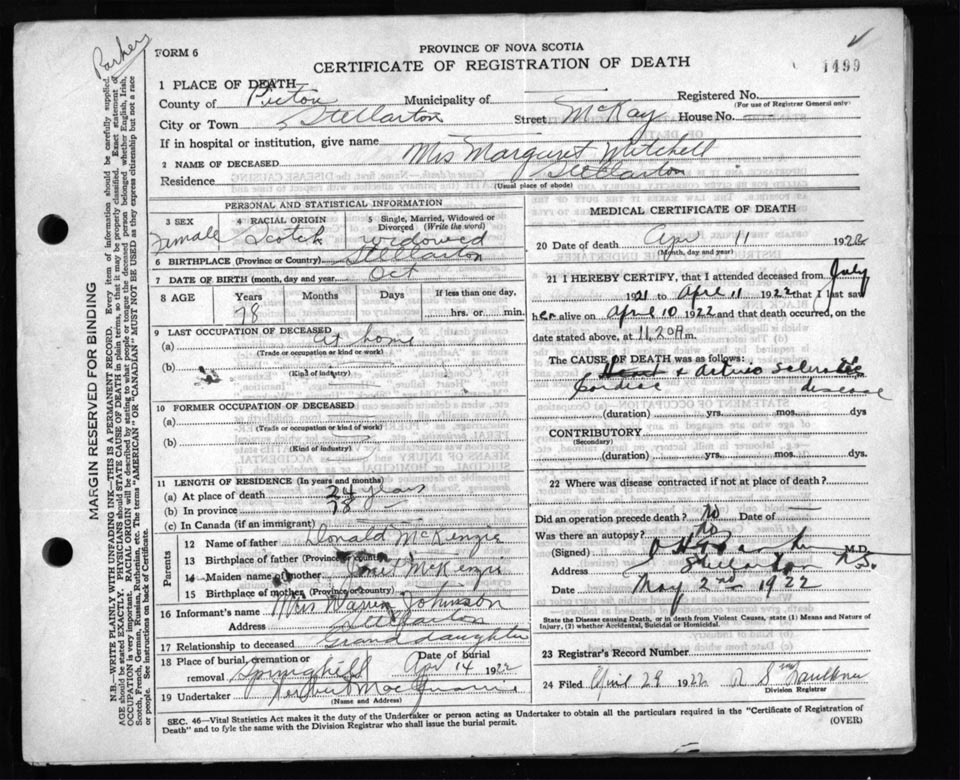 Parker
FORM 6
PROVINCE OF NOVA SCOTIA
CERTIFICATE OF REGISTRATION OF DEATH
1499
1 PLACE OF DEATH
County of Pictou Municipality of — Registered No.
(For use of Registrar General only)
City or Town Stellarton Street McKay House No.
If in hospital or institution, give name
2 NAME OF DECEASED Mrs Margaret Mitchell
Residence Stellarton
(Usual place of abode)
MARGIN RESERVED FOR BINDING
N.B.—WRITE PLAINLY WITH UNFADING INK—THIS IS A PERMANENT RECORD. Every item of information should be carefully supplied.
AGE should be stated EXACTLY. PHYSICIANS should STATE CAUSE OF DEATH in plain terms, so that it may be properly classified. Exact statement of
OCCUPATION is very important. RACIAL ORIGIN will be described by stating to what people or tongue the deceased person belonged whether English, Irish,
Scotch, French, German, Russian, Ruthenian, etc. The terms "AMERICAN" or "CANADIAN" MUST NOT BE USED as they express citizenship but not a race
or people. See instructions on back of Certificate.
PERSONAL AND STATISTICAL INFORMATION
3 SEX Female
4 RACIAL ORIGIN Scotch
5 Single, Married, Widowed or
Divorced (Write the word)
widowed
6 BIRTHPLACE (Province or Country) Stellarton
7 DATE OF BIRTH (month, day and year) Oct
8 AGE Years Months Days If less than one day,
78 hrs. or min.
9 LAST OCCUPATION OF DECEASED
(a) at home
(Trade or occupation or kind or work)
(b)
(Kind of industry)
10 FORMER OCCUPATION OF DECEASED
(a)
(Trade or occupation or kind of work)
(b)
(Kind of industry)
11 LENGTH OF RESIDENCE (In years and months)
(a) At place of death 24 years
(b) In province 78
(c) In Canada (if an immigrant)
Parents
12 Name of father Donald McKenzie
13 Birthplace of father (Province or country)
14 Maiden name of mother McKenzie
15 Birthplace of mother (Province or country)
16 Informant's name Mrs Warren Johnson
Address Stellarton
17 Relationship to deceased Grand daughter
18 Place of burial, cremation or Date of burial
removal Springhill Apr 14 1922
19 Undertaker
(Name and Address)
MEDICAL CERTIFICATE OF DEATH
20 Date of death Apr 11 1922
(Month, day and year)
21 I HEREBY CERTIFY, that I attended deceased from July
1921 to April 11 1922 that I last saw
her alive on April 10 1922 and that death occurred, on the
date stated above, at 11.20 A m.
The CAUSE OF DEATH was as follows:
Heart & Arterio
Cardiac disease
(duration) yrs. mos. dys
CONTRIBUTORY
(Secondary)
(duration) yrs. mos. dys.
22 Where was disease contracted if not at place of death?
Did an operation precede death? no Date of —
Was there an autopsy? no
(Signed) M.D.
Address Stellarton N.S.
Date May 2nd 1922
State the Disease causing Death, or in death from Violent Causes, state (1) Means and Nature of
Injury, (2) whether Accidental, Suicidal or Homicidal.
23 Registrar's Record Number
24 Filed April 29 1922 Faulkner
Division Registrar
SEC. 46—Vital Statistics Act makes it the duty of the Undertaker or person acting as Undertaker to obtain all the particulars required in the "Certificate of Registration of
Death" and to fyle the same with the Division Registrar who shall issue the burial permit.
(OVER)